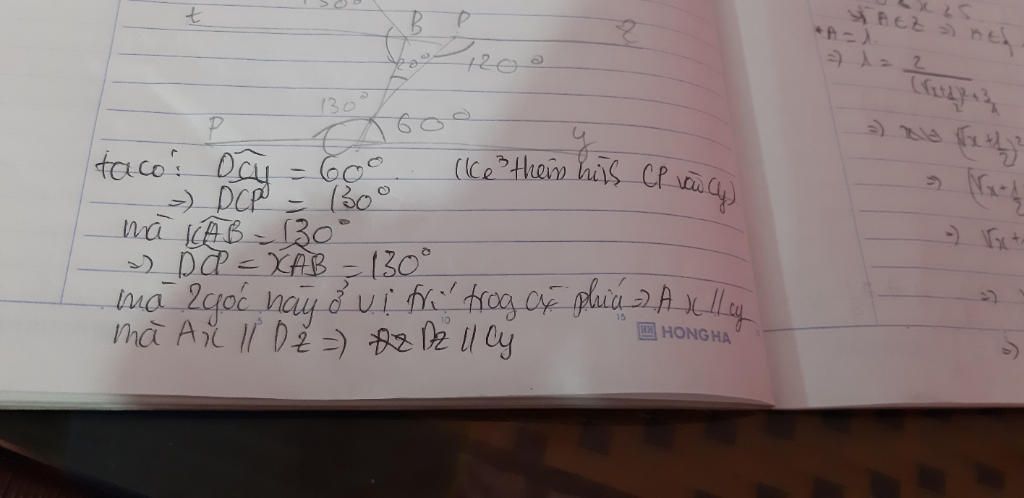 130°
t B P z
20° 120°
130°
P 60° y
ta có: DCy = 60°. (Kẻ thêm hình CP vào Cy)
=> DCP = 130°
mà xAB = 130°
=> DCP = xAB = 130°
mà 2 góc này ở vị trí trog cx phía => Ax // cy
mà Ax // Dz => Dz Dz // Cy
HONG HA
10
15
=> A ∈ Z => n ∈
*A = 1
=> 1 = 2
=>
=>
=> √x +
=>
=>